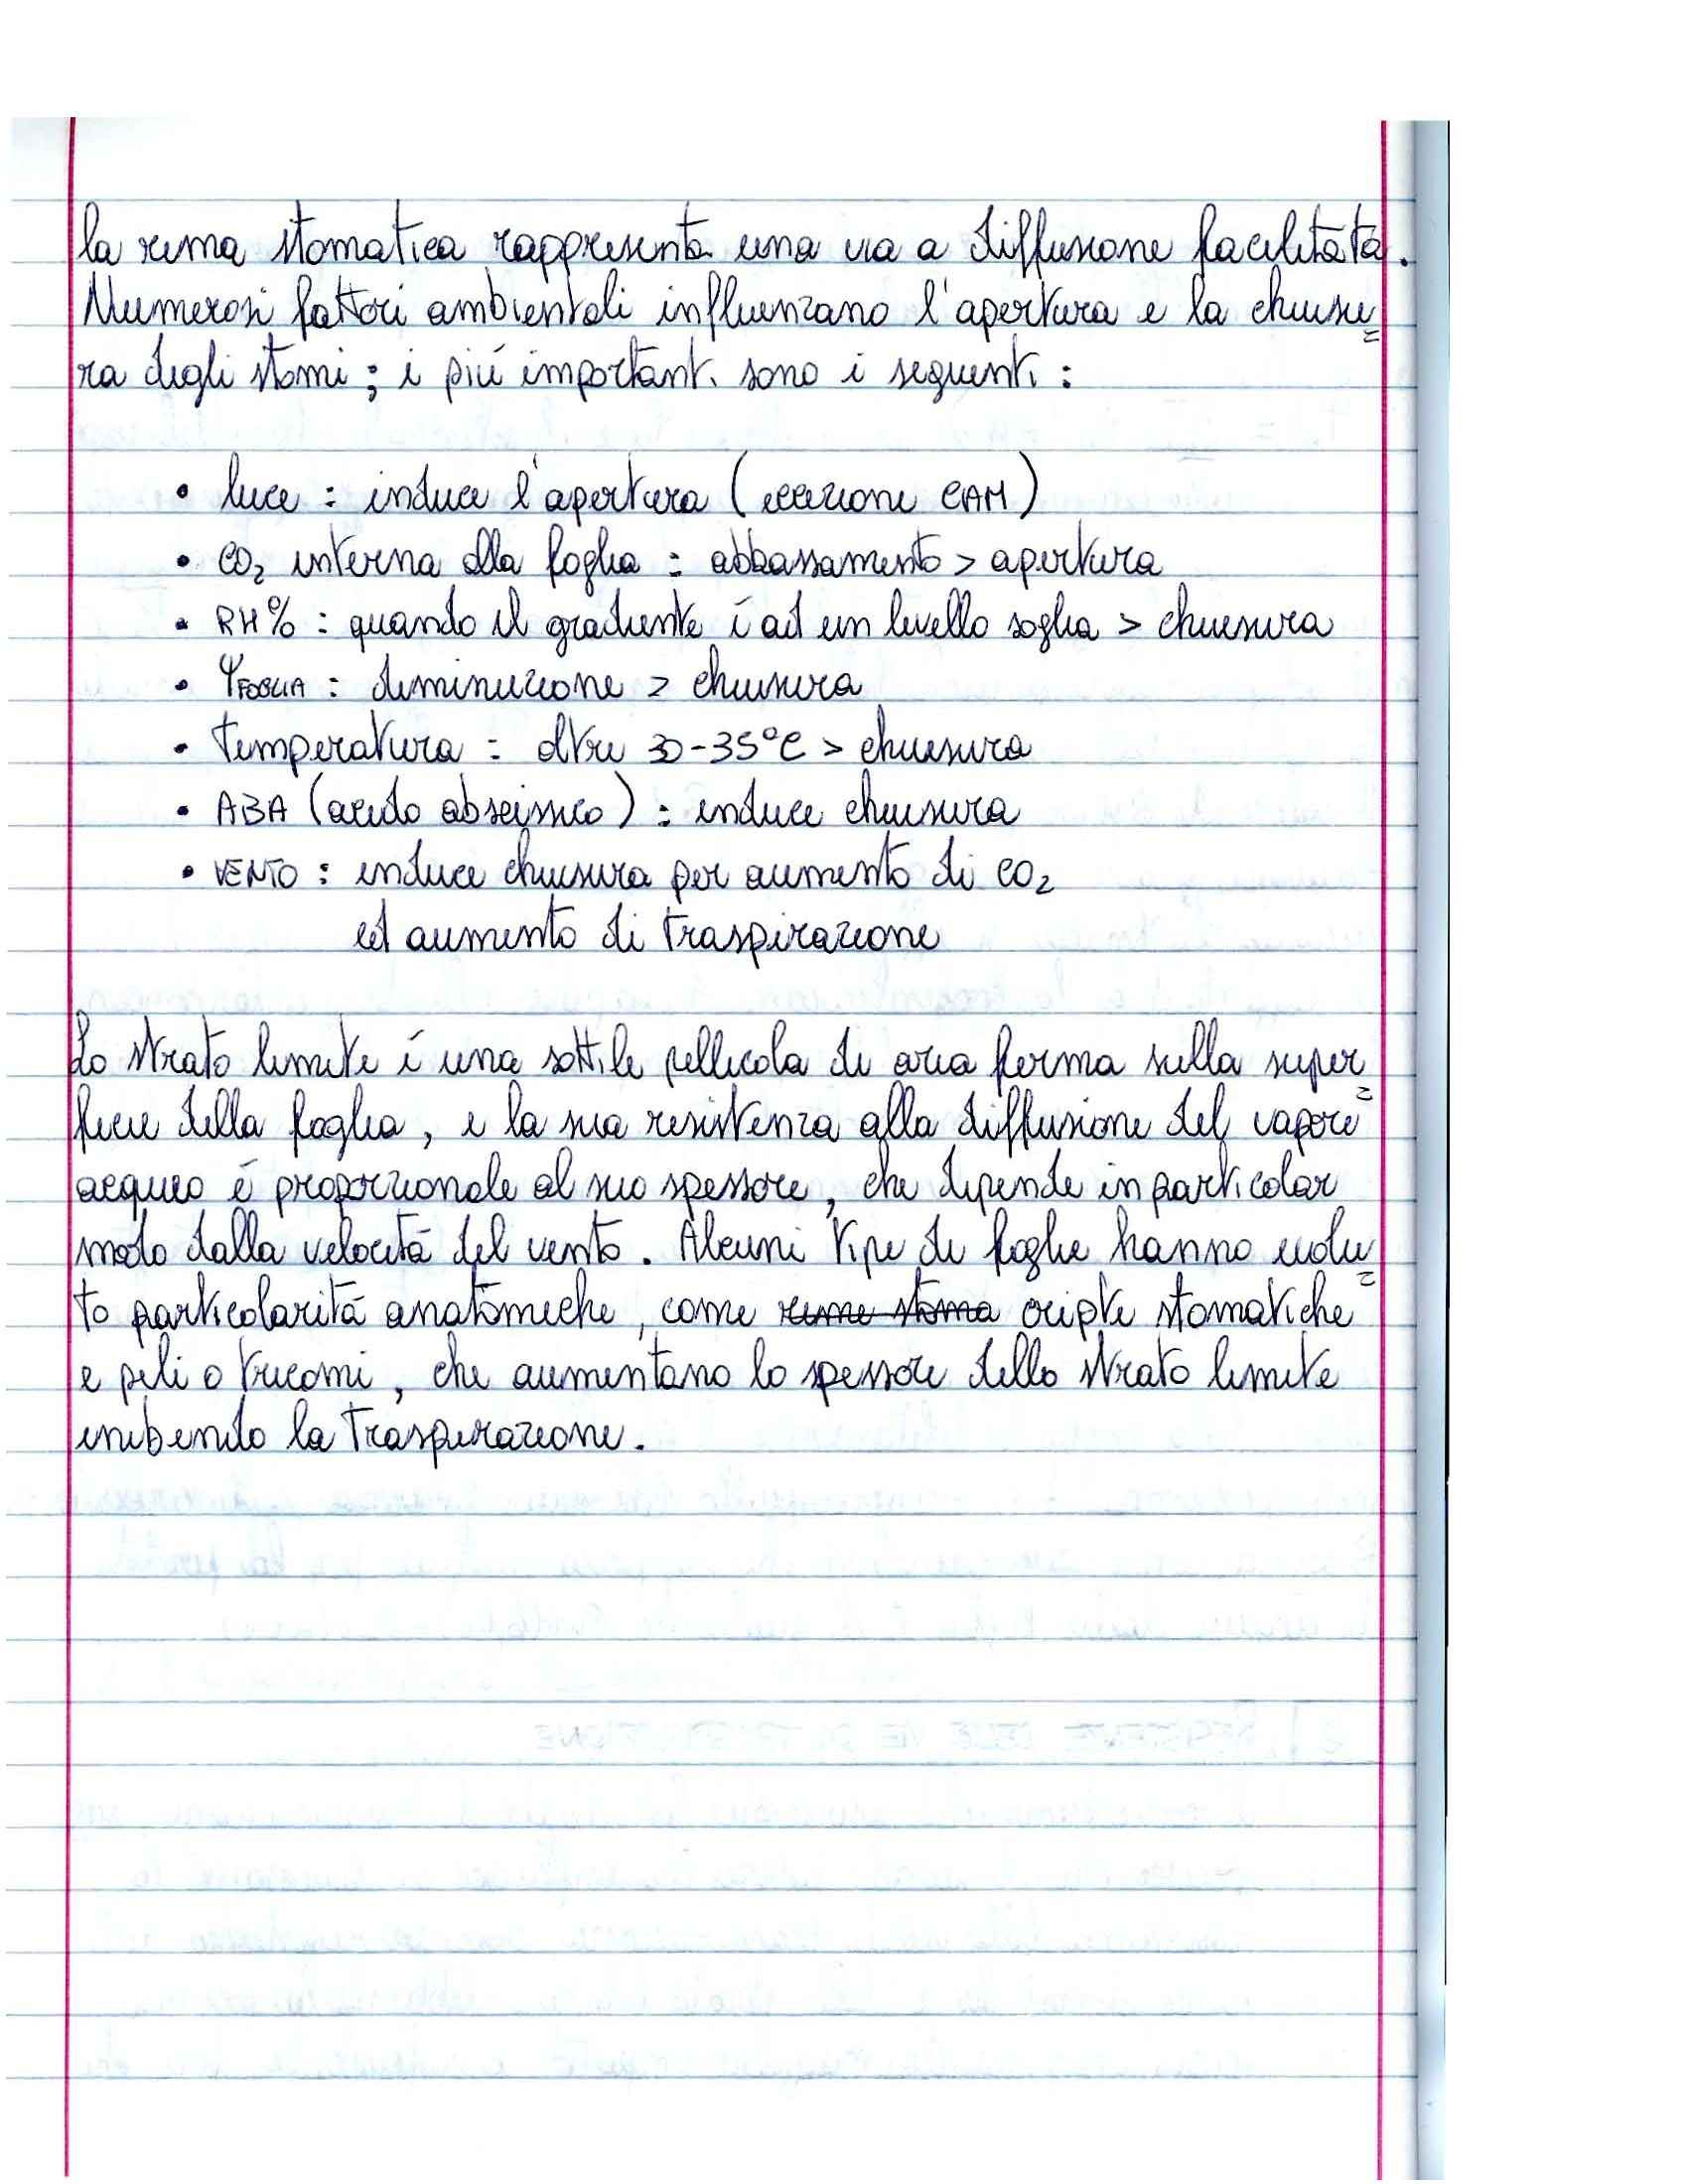 la rima stomatica rappresenta una via a diffusione facilitata.
Numerosi fattori ambientali influenzano l'apertura e la chiusu=
ra degli stomi; i piú importanti sono i seguenti:
• luce: induce l'apertura (eccezione CAM)
• CO₂ interna alla foglia: abbassamento > apertura
• RH%: quando il gradiente é ad un livello soglia > chiusura
• Ψ FOGLIA: diminuzione > chiusura
• temperatura: oltre 30-35°C > chiusura
• ABA (acido abscissico): induce chiusura
• VENTO: induce chiusura per aumento di CO₂
ed aumento di traspirazione
Lo strato limite é una sottile pellicola di aria ferma sulla super=
ficie della foglia, e la sua resistenza alla diffusione del vapore
acqueo é proporzionale al suo spessore, che dipende in particolar
modo dalla velocitá del vento. Alcuni tipi di foglie hanno evolu=
to particolaritá anatomiche, come rime stoma cripte stomatiche
e peli o tricomi, che aumentano lo spessore dello strato limite
inibendo la traspirazione.